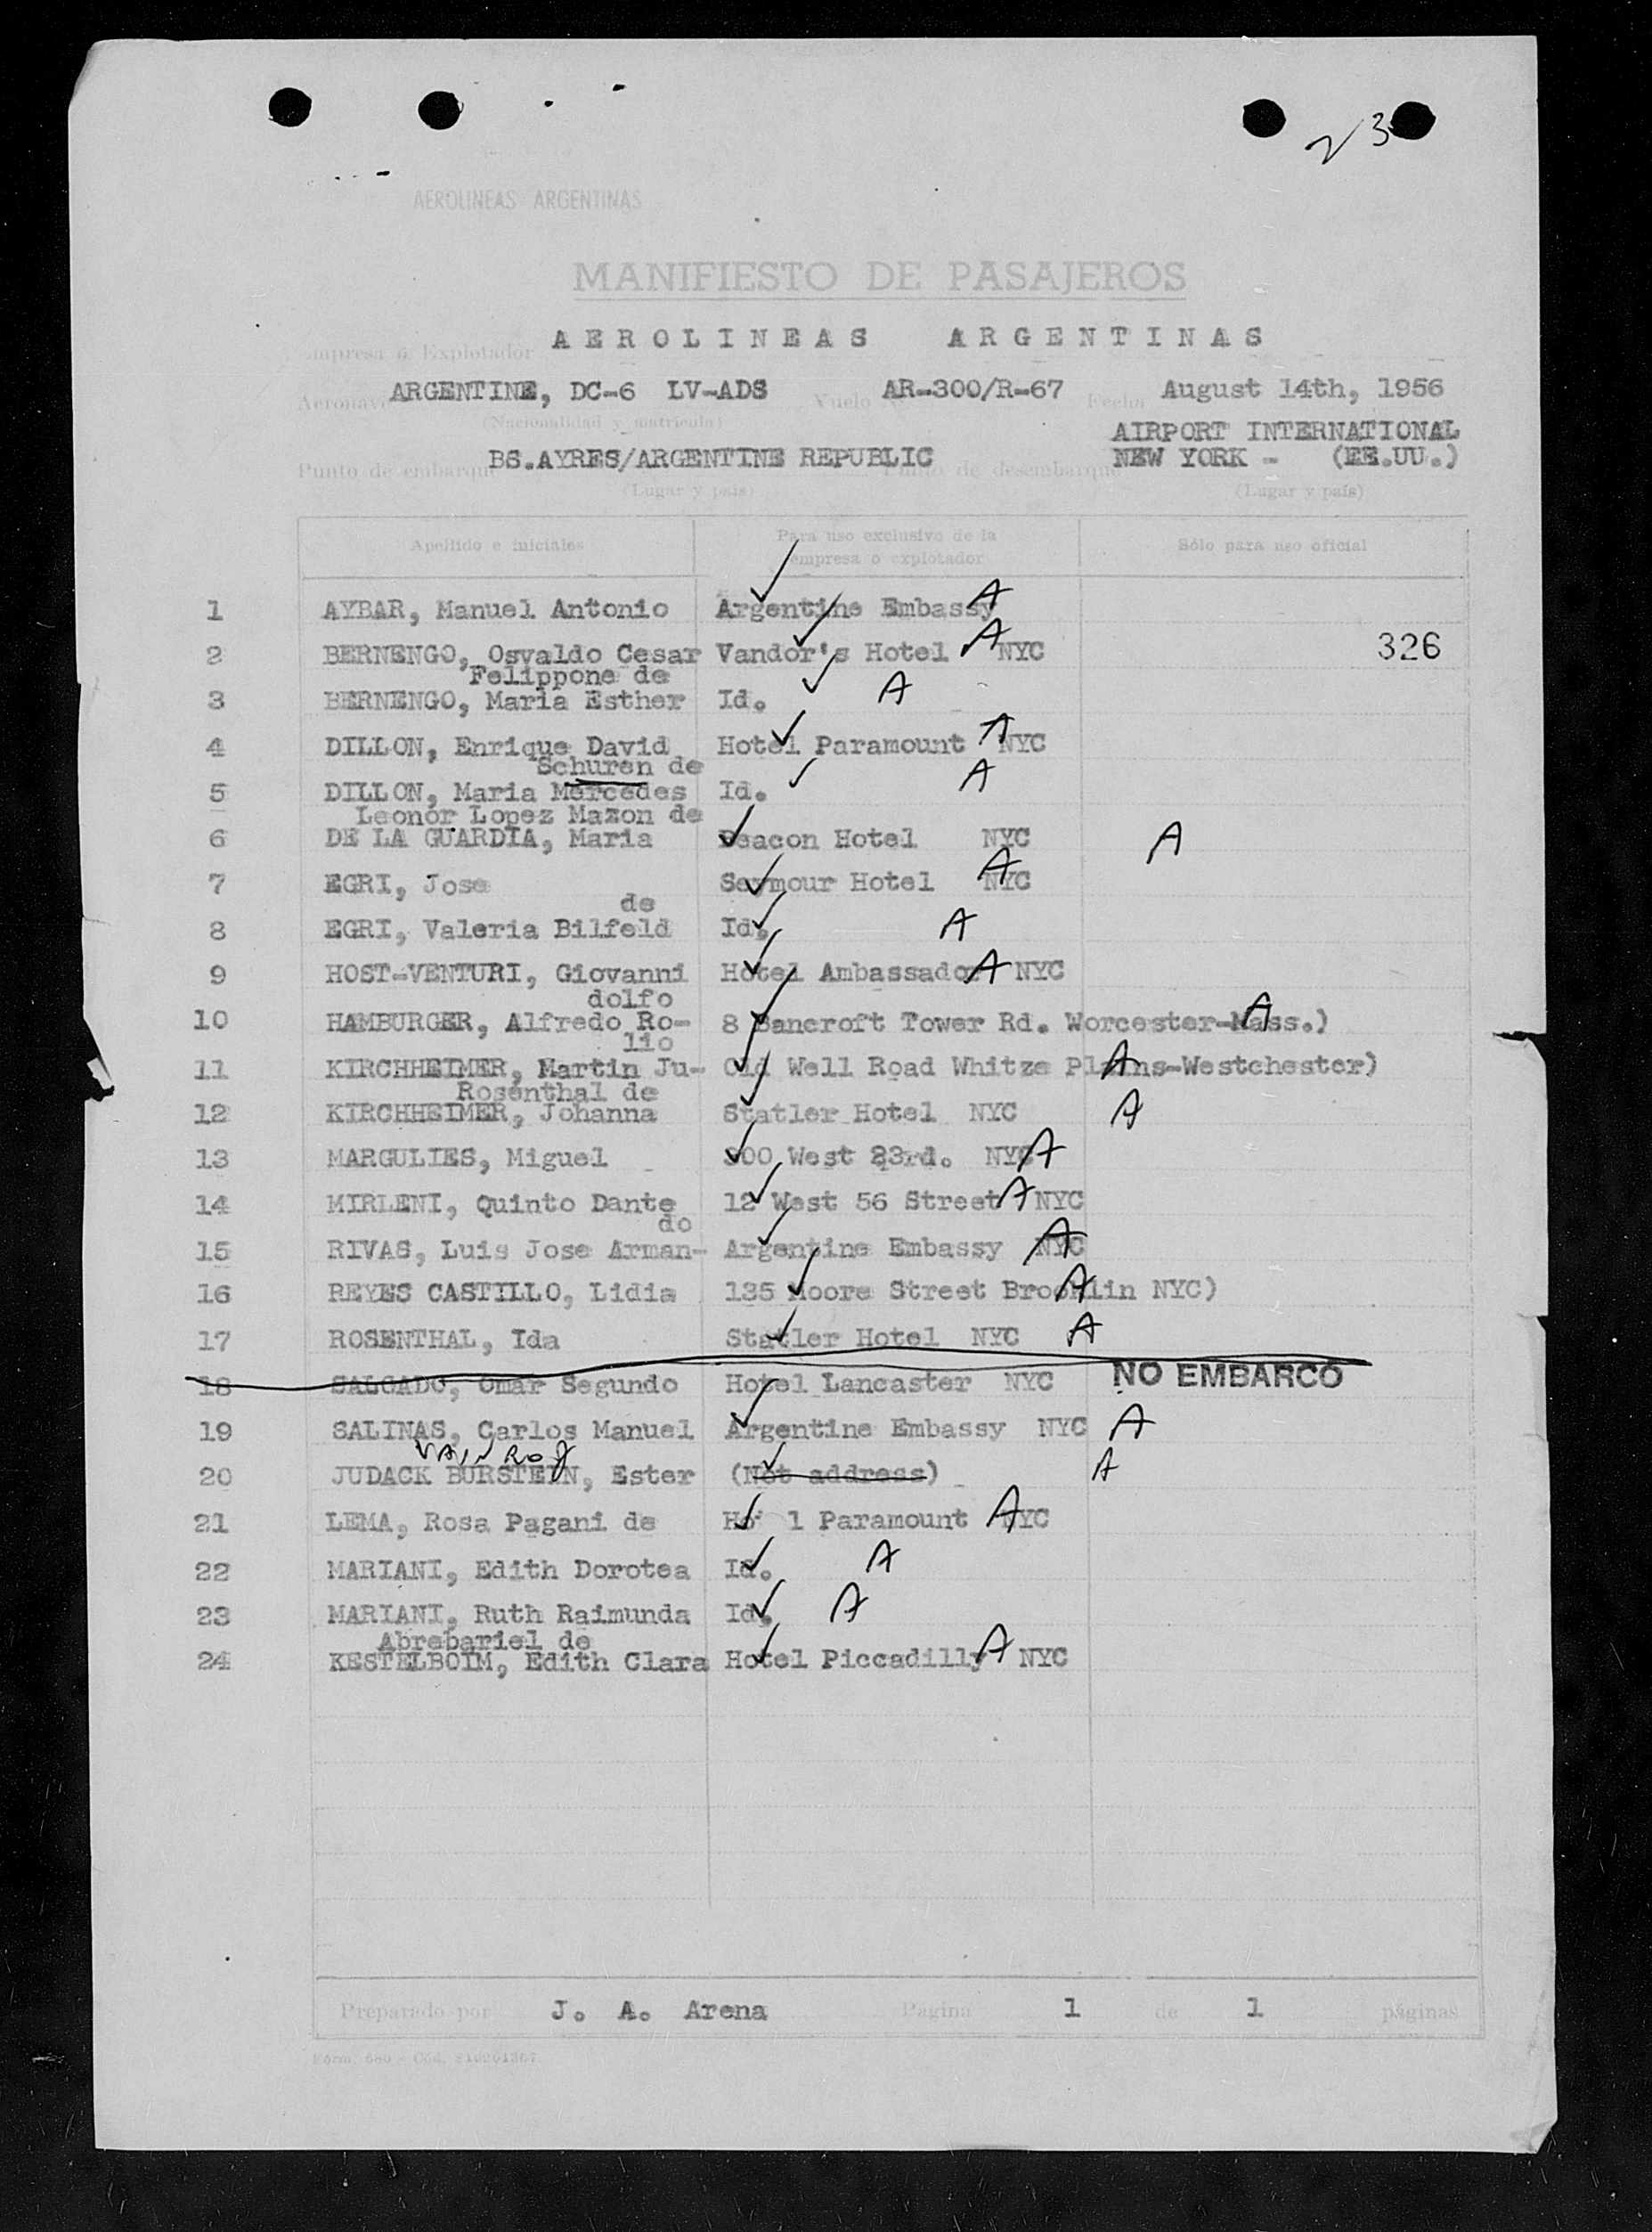 23
AEROLINEAS ARGENTINAS
MANIFIESTO DE PASAJEROS
Empresa o Explotador AEROLINEAS ARGENTINAS
Aeronave ARGENTINE, DC-6 LV-ADS Vuelo AR-300/R-67 Fecha August 14th, 1956
(Nacionalidad y matrícula)
AIRPORT INTERNATIONAL
Punto de embarque BS.AYRES/ARGENTINE REPUBLIC de desembarque NEW YORK - (EE.UU.)
(Lugar y país) (Lugar y país)
Apellido e iniciales Para uso exclusivo de la empresa o explotador Sólo para uso oficial
1 AYBAR, Manuel Antonio Argentine Embassy A
2 BERNENGO, Osvaldo Cesar Vandor's Hotel A NYC 326
Felippone de
3 BERNENGO, Maria Esther Id. A
4 DILLON, Enrique David Hotel Paramount A NYC
Schuren de
5 DILLON, Maria Mercedes Id. A
Leonor Lopez Mazon de
6 DE LA GUARDIA, Maria Beacon Hotel NYC A
7 EGRI, Jose Seymour Hotel A NYC
de
8 EGRI, Valeria Bilfeld Id. A
9 HOST-VENTURI, Giovanni Hotel Ambassador A NYC
dolfo
10 HAMBURGER, Alfredo Ro- 8 Bancroft Tower Rd. Worcester-Mass.) A
lio
11 KIRCHHEIMER, Martin Ju- Old Well Road Whitze Plains-Westchester) A
Rosenthal de
12 KIRCHHEIMER, Johanna Statler Hotel NYC A
13 MARGULIES, Miguel 300 West 23rd. NYC A
14 MIRLENI, Quinto Dante 12 West 56 Street A NYC
do
15 RIVAS, Luis Jose Arman- Argentine Embassy NYC A
16 REYES CASTILLO, Lidia 135 Moore Street Brooklin NYC) A
17 ROSENTHAL, Ida Statler Hotel NYC A
18 SALGADO, Omar Segundo Hotel Lancaster NYC NO EMBARCO
19 SALINAS, Carlos Manuel Argentine Embassy NYC A
20 JUDACK BURSTEIN, Ester (Not address) A
21 LEMA, Rosa Pagani de Ho l Paramount A NYC
22 MARIANI, Edith Dorotea Id. A
23 MARIANI, Ruth Raimunda Id. A
Abrebariel de
24 KESTELBOIM, Edith Clara Hotel Piccadilly A NYC
Preparado por J. A. Arena Página 1 de 1 páginas